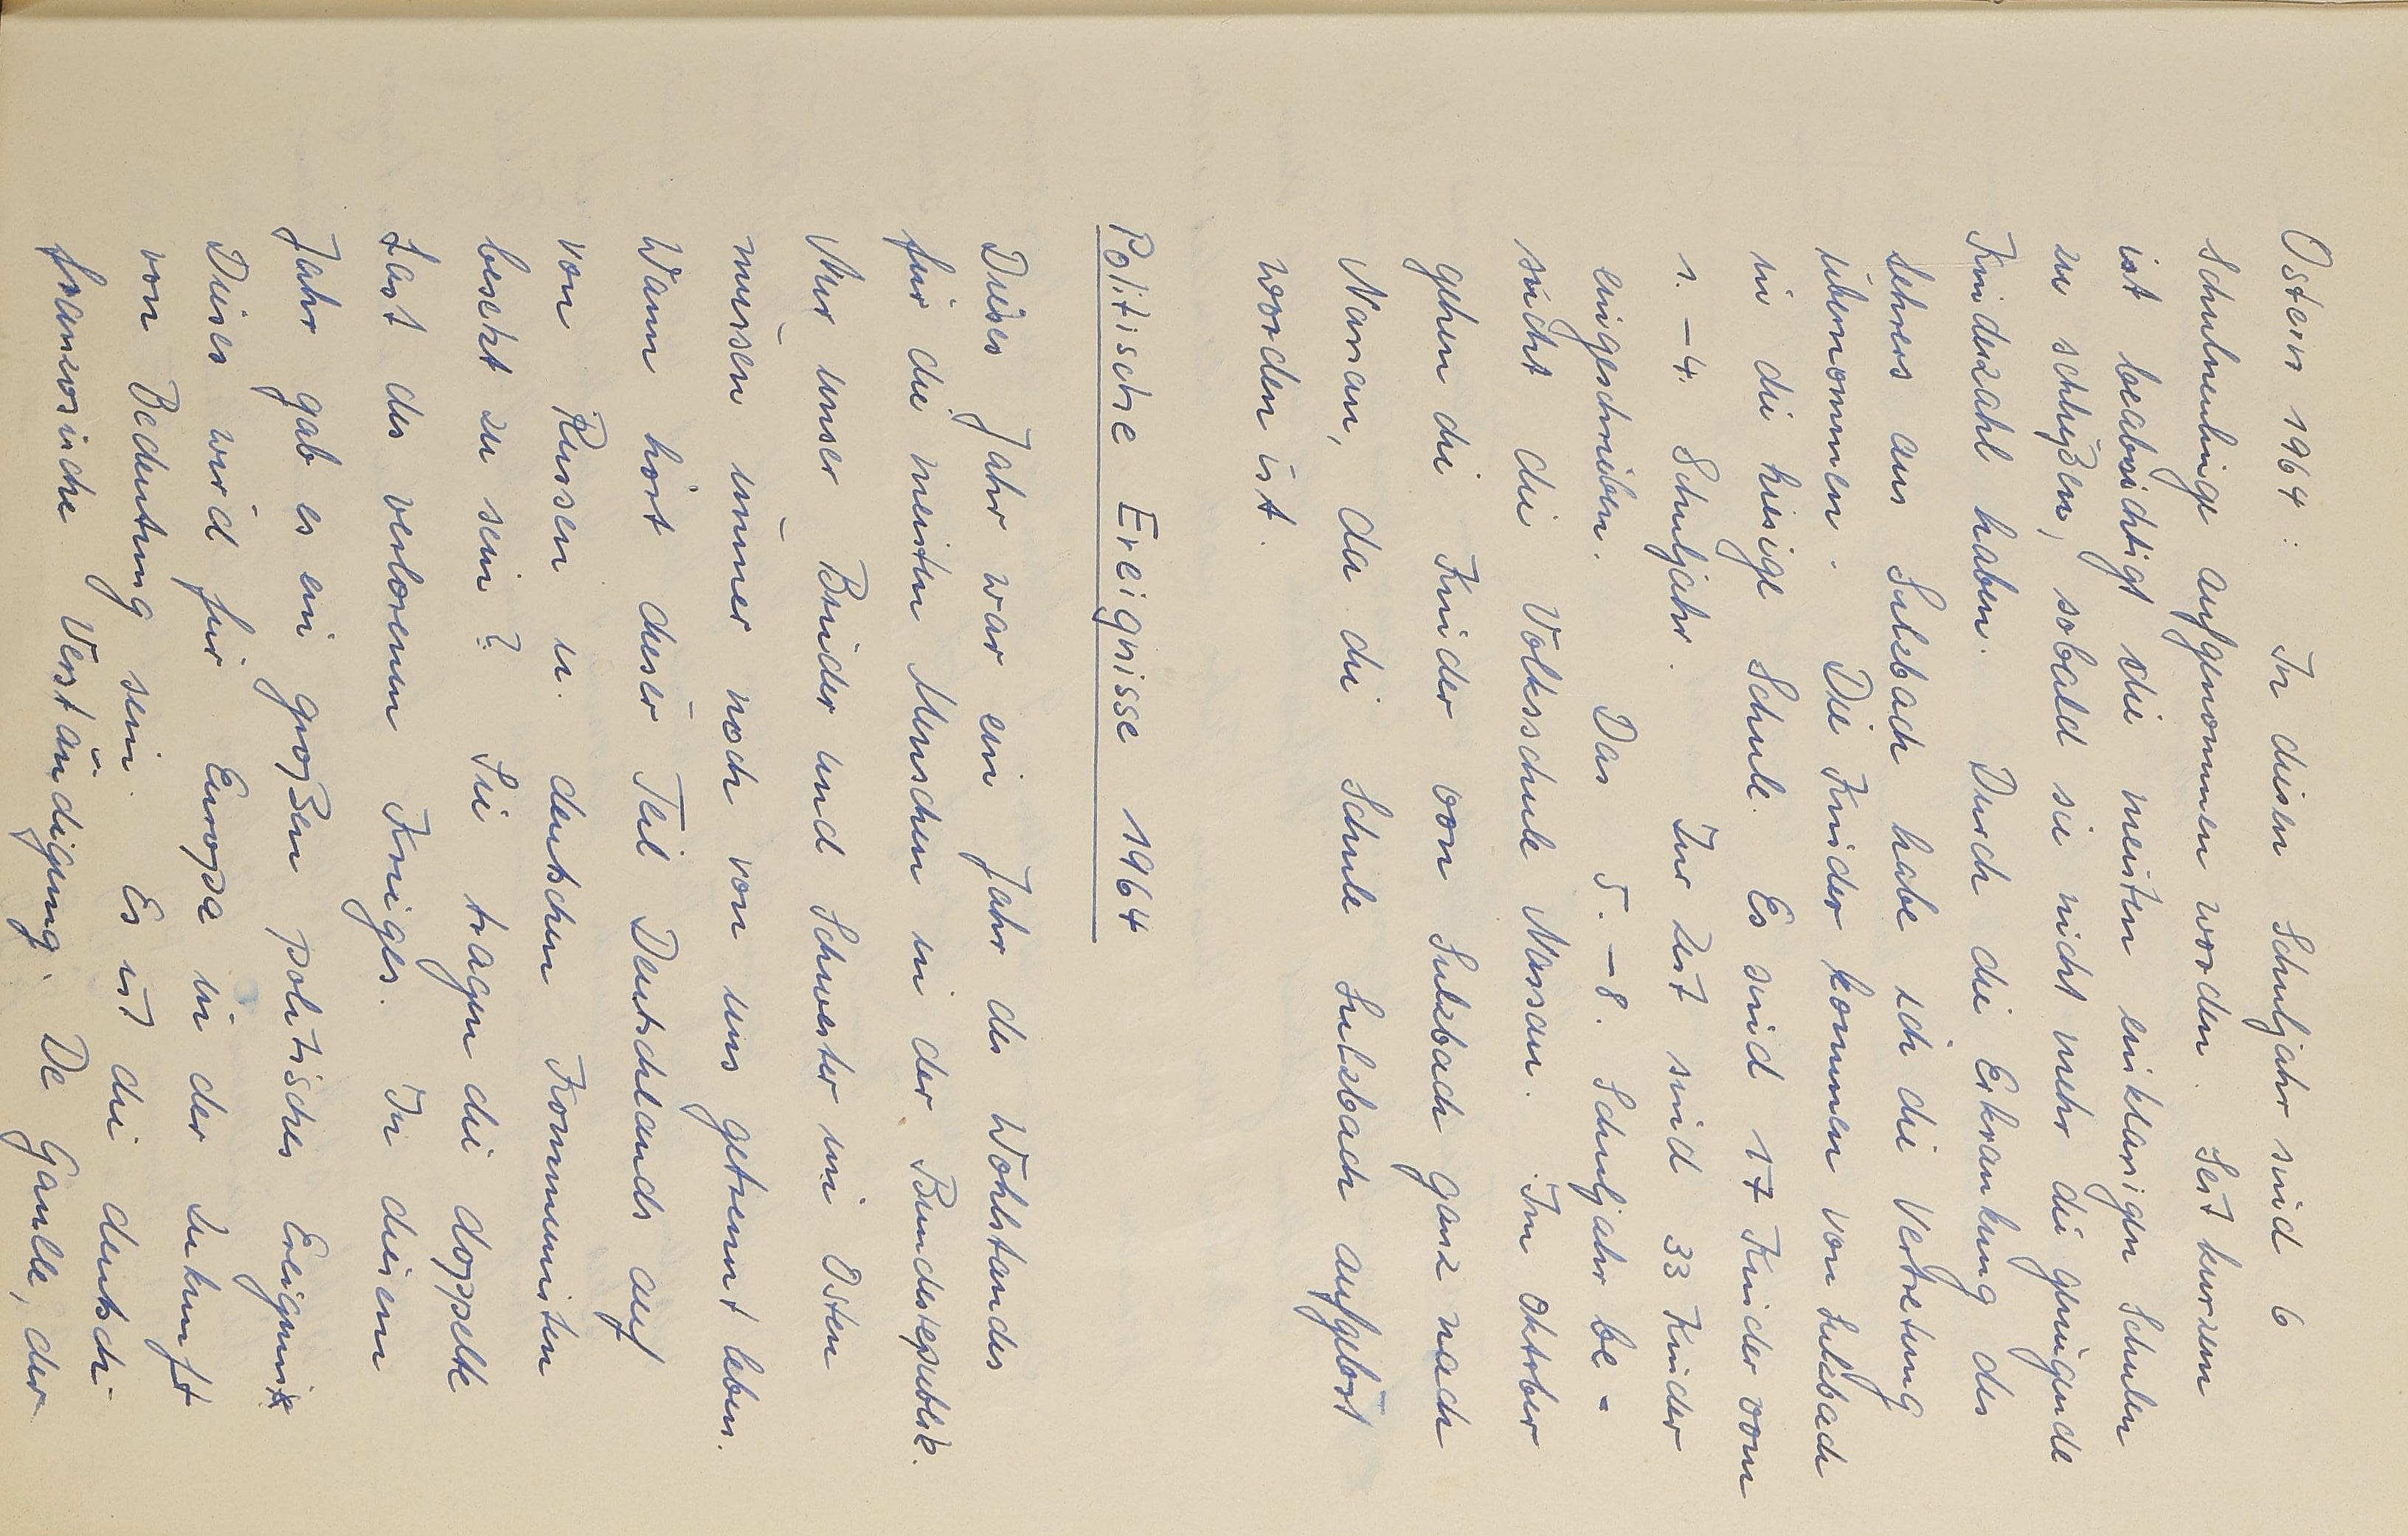 Ostern 1964: In diesem Schuljahr sind 6
Schulneulinge aufgenommen worden. Seit kurzem
ist beabsichtigt die meisten einklasigen Schulen
zu schließen, sobald sie nicht mehr die genügende
Kinderzahl haben. Durch die Erkrankung des
Lehrers aus Sulzbach habe ich die Vertretung
übernommen. Die Kinder kommen von Sulzbach
in die hiesige Schule. Es sind 17 Kinder vom
1. – 4. Schuljahr. Zur Zeit sind 33 Kinder
eingeschrieben. Das 5. – 8. Schuljahr be-
sucht die Volksschule Nassau. Im Oktober
gehen die Kinder von Sulzbach ganz nach
Nassau, da die Schule Sulzbach aufgelöst
worden ist.
Politische Ereignisse 1964
Dieses Jahr war ein Jahr des Wohlstandes
für die meisten Menschen in der Bundesrepublik.
Nur unser Brüder und Schwester im Osten
müs̄en im̄er noch von uns getrennt leben.
Wann hört dieser Teil Deutschlands auf
von Russen u. deutschen Kommunisten
besetzt zu sein? Sie tragen die doppelte
Last des verlorenen Krieges. In diesem
Jahr gab es ein großen politisches Ereignis
Dieses wird für Europa in der Zukunft
von Bedeutung sein. Es ist die deutsch-
französische Verständigung. De Gaulle, der